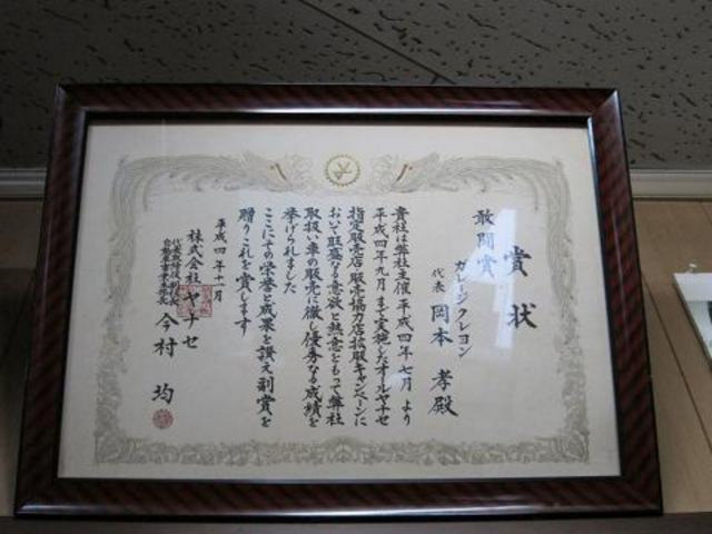 賞状
敢闘賞
ガレージクレヨン
代表 岡本 孝殿
貴社は弊社主催平成四年七月より
平成四年九月まで実施したオールヤナセ
指定販売店・販売協力店拡販キャンペーンに
おいて旺盛なる意欲と熱意をもって弊社
取扱い車の販売に徹し優秀なる成績を
挙げられました
ここにその栄誉と成果を讃え副賞を
贈りこれを賞します
平成四年十一月
株式会社ヤナセ
今村 均